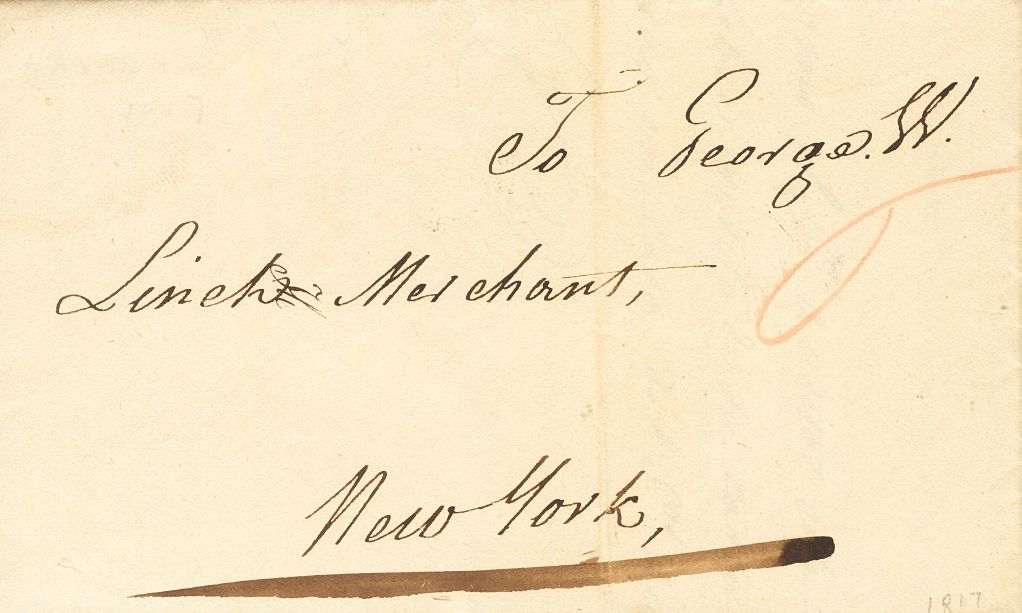 To George. W.
Linck Merchant,
New York,
1817